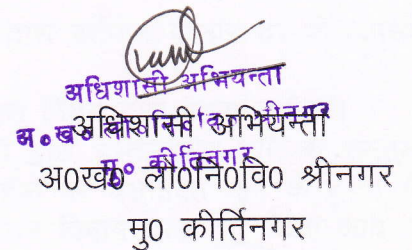 अधिशासी अभियन्ता
अ०ख० लो०नि०वि० श्रीनगर
मु० कीर्तिनगर
अधिशासी अभियन्ता
अ0ख0 लो0नि0वि0 श्रीनगर
मु0 कीर्तिनगर